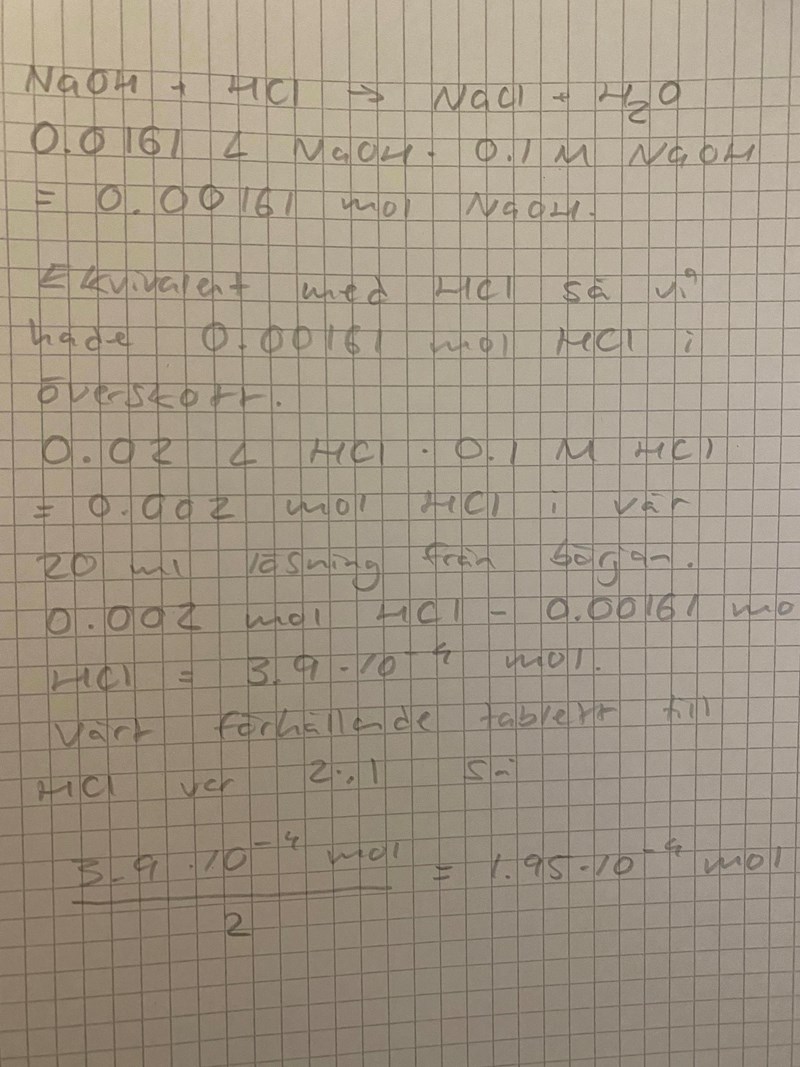 NaOH + HCl → NaCl + H₂O
0.0161 L NaOH · 0.1 M NaOH
= 0.00161 mol NaOH.
Ekvivalent med HCl så vi
hade 0.00161 mol HCl i
överskott.
0.02 L HCl · 0.1 M HCl
= 0.002 mol HCl i vår
20 ml lösning från början.
0.002 mol HCl - 0.00161 mo
HCl = 3.9 · 10⁻⁴ mol.
Vårt förhållande tablett till
HCl var 2:1 så
3.9 · 10⁻⁴ mol = 1.95 · 10⁻⁴ mol
2